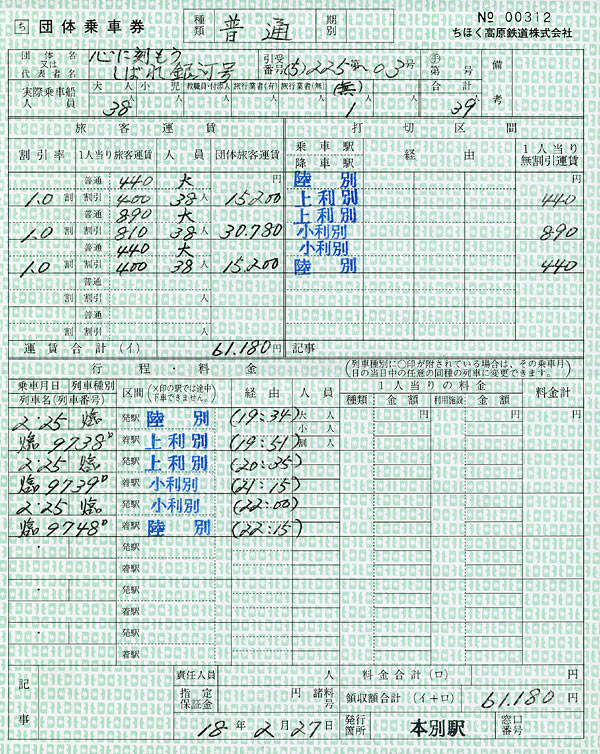 ち 団体乗車券 種類 普通 期別 № 00312
ちほく高原鉄道株式会社
団体名又は代表者名 心に刻もうしばれ銀河号 引受番号 (5)225 第 -03号 第 号 備考
実際乗車船人員 大人 小児 教職員・付添人 旅行業者(有) 旅行業者(無) 合計
38人 人 人 人 (無) 1人 39人
旅客運賃 打切区間
割引率 1人当り旅客運賃 人員 団体旅客運賃 乗車駅 降車駅 経由 1人当り無割引運賃
普通 440 大 円 陸別 円
1.0割 割引 400 38人 15,200 上利別 440
普通 890 大 上利別
1.0割 割引 810 38人 30,780 小利別 890
普通 440 大 小利別
1.0割 割引 400 38人 15,200 陸別 440
普通
割 割引 人
普通
割 割引 人
運賃合計(イ) 61,180円 記事
行程・料金 (列車種別に○印が附されている場合は、その乗車月日の当日中の任意の同種の列車に変更できます。)
乗車月日 列車種別 区間 (×印の駅では途中下車できません。) 経由 人員 1人当りの料金 料金計
列車名(列車番号) 種類 金額 利用施設 金額
2・25 臨 発駅 陸別 (19:34) 大人 円 円 円
臨 9738D 着駅 上利別 (19:51) 小人 割人
2・25 臨 発駅 上利別 (20:35)
臨 9739D 着駅 小利別 (21:15)
2・25 臨 発駅 小利別 (22:00)
臨 9748D 着駅 陸別 (22:15)
・ 発駅
着駅
・ 発駅
着駅
・ 発駅
着駅
記事 責任人員 人 料金合計(ロ) 円
指定保証金 円 諸料号 領収額合計(イ+ロ) 61,180円
18年2月27日 発行箇所 本別駅 窓口番号